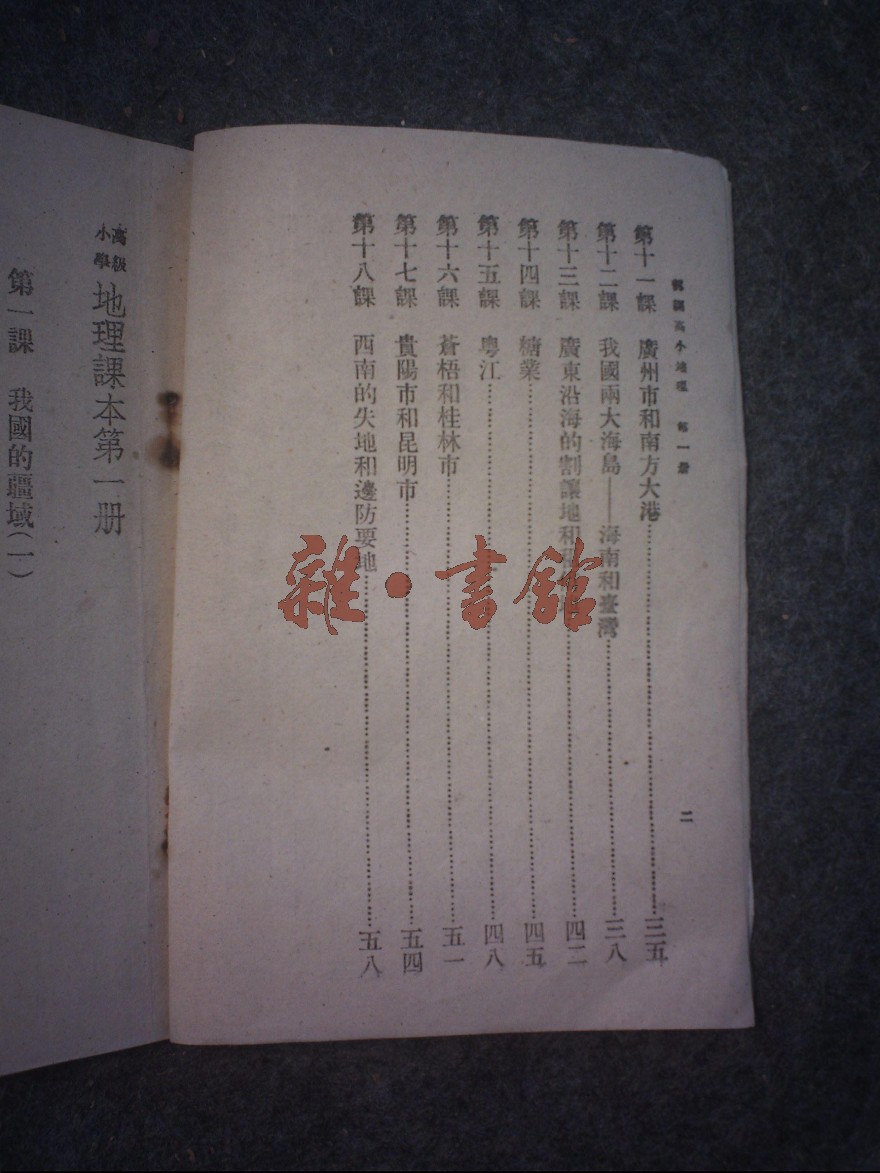 高小地理 第一册
第十一課 廣州市和南方大港……三五
第十二課 我國兩大海島——海南和臺灣……三八
第十三課 廣東沿海的割讓地和租……四二
第十四課 糖業……四五
第十五課 粵江……四八
第十六課 蒼梧和桂林市……五一
第十七課 貴陽市和昆明市……五四
第十八課 西南的失地和邊防要地……五八
二
高級小學 地理課本第一册
第一課 我國的疆域（一）
雜·書館